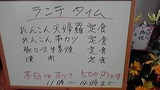 ランチ タイム
れんこん天婦羅 定食
れんこん串カツ 定食
豚ロース生姜焼 定食
焼肉 定食
本日は 500円です
11時〜14時まで